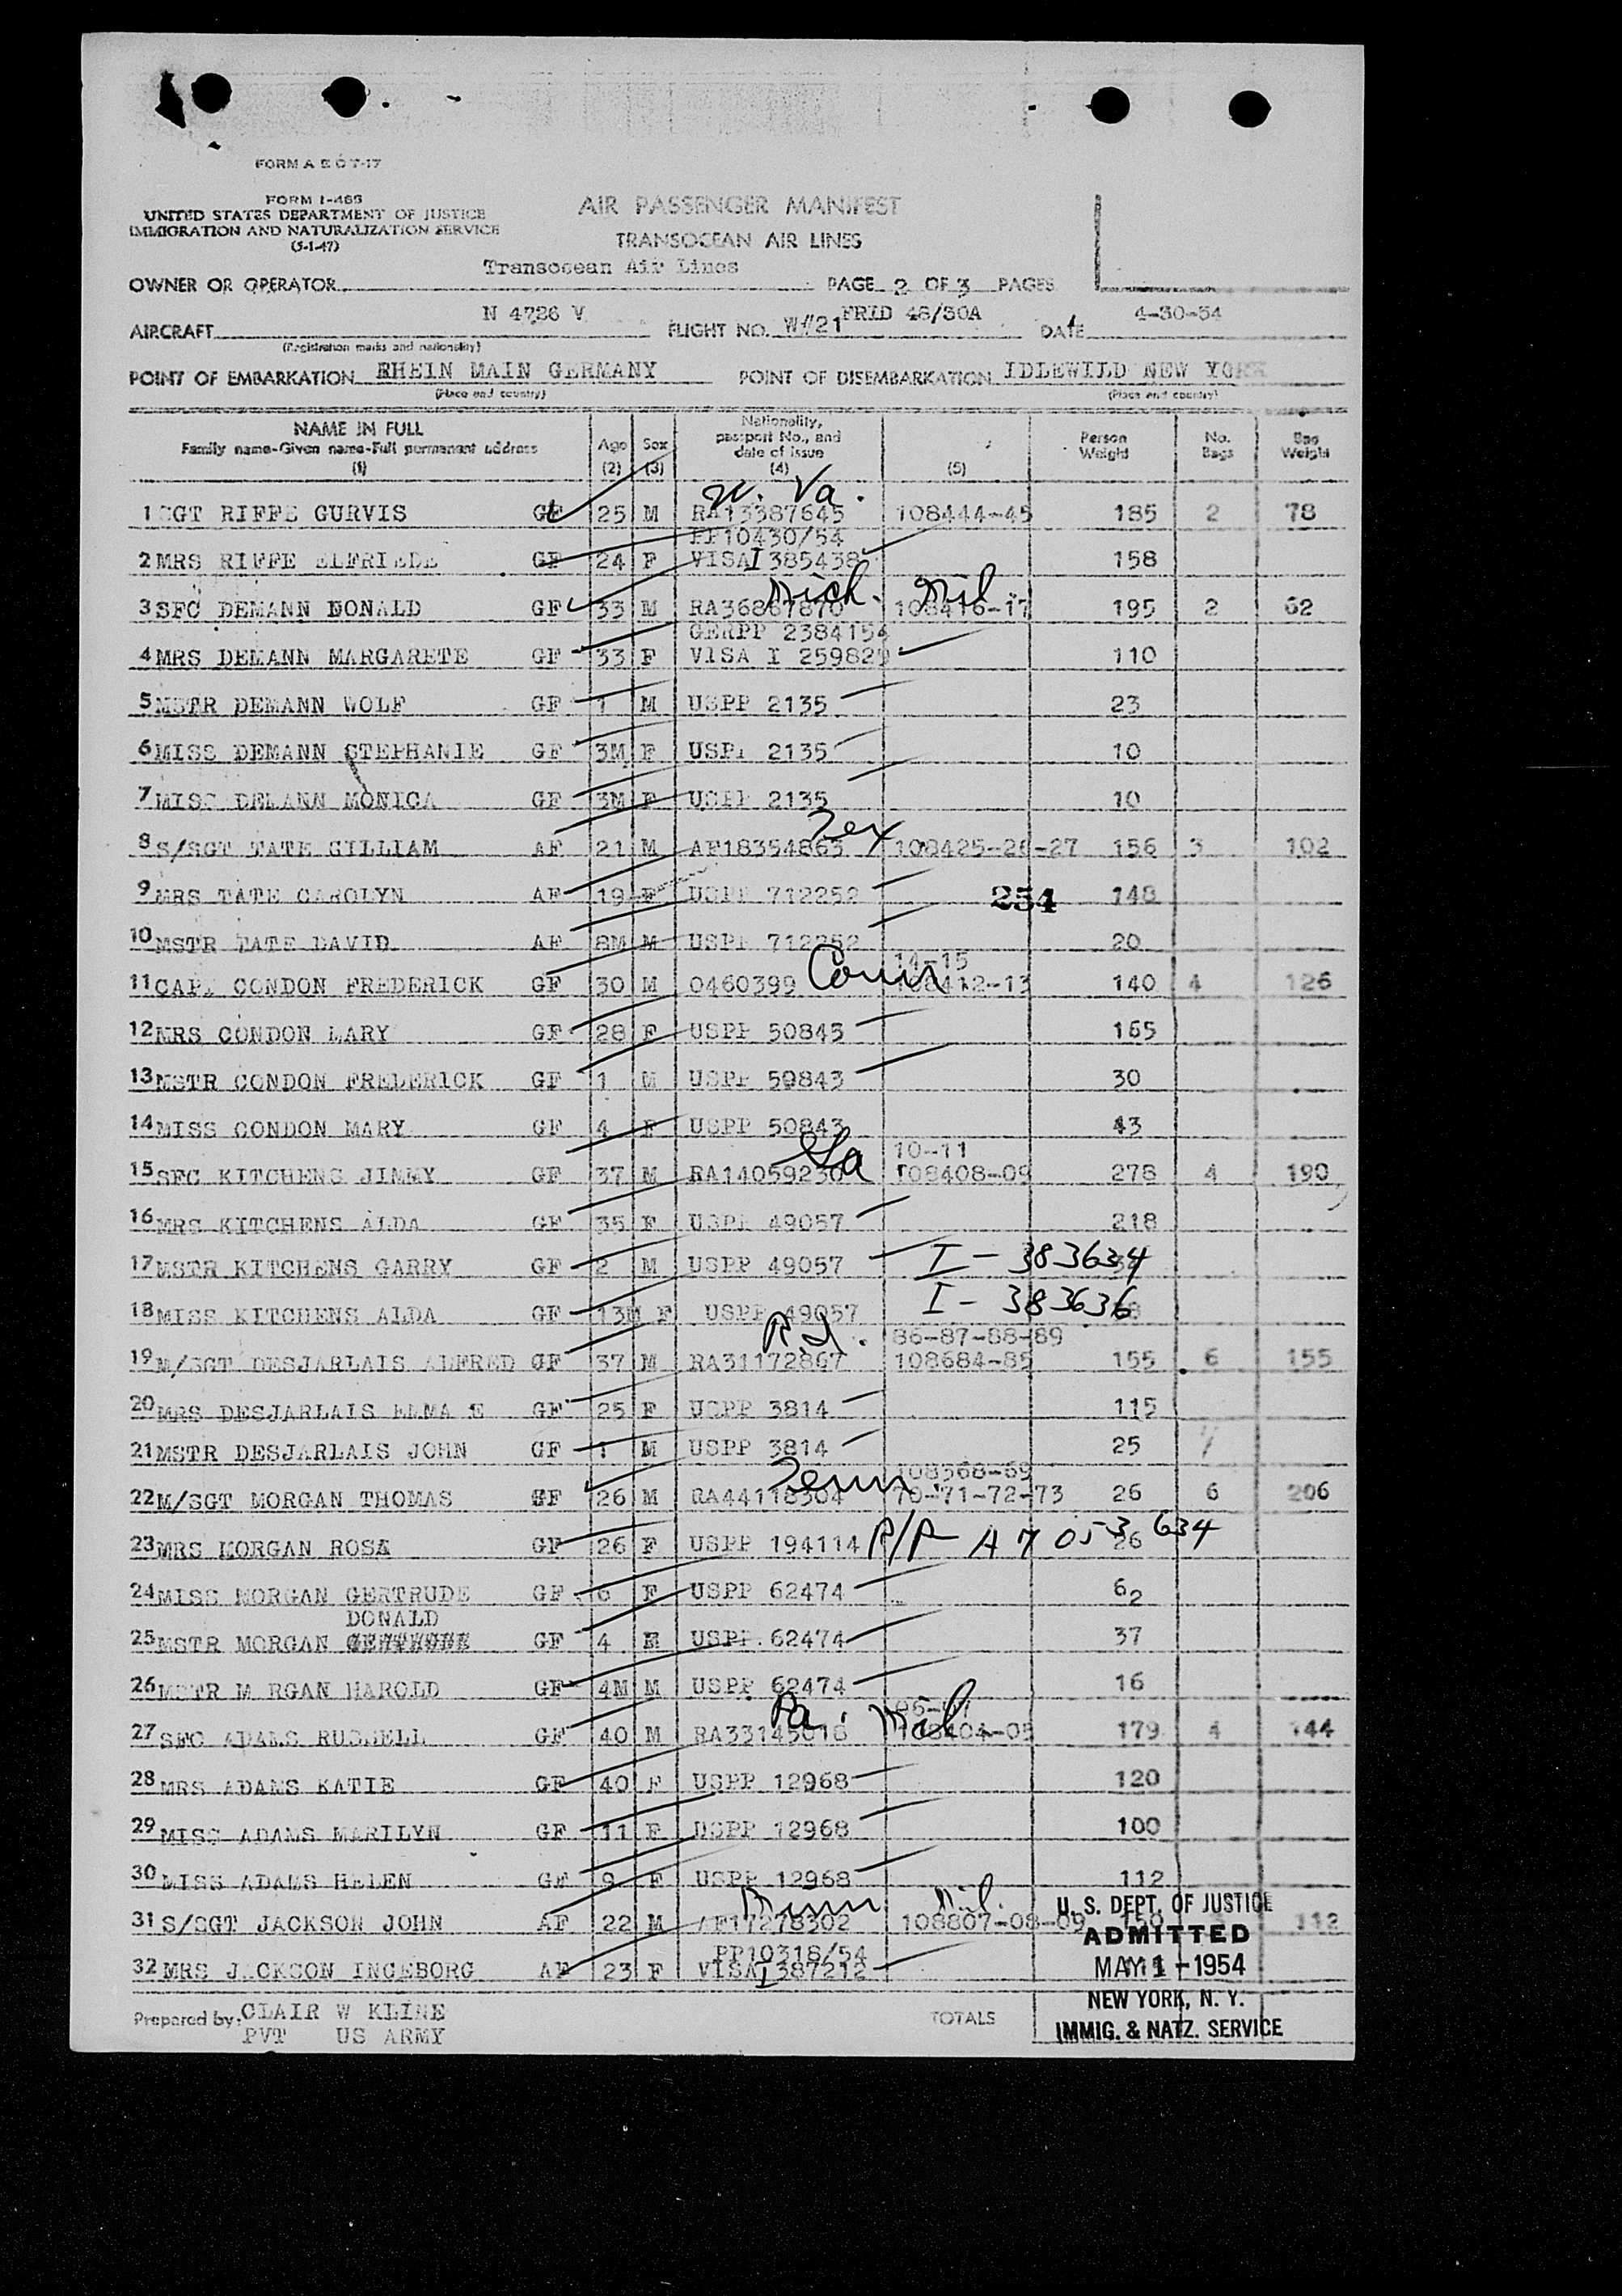 FORM A E O T-17
FORM I-466
UNITED STATES DEPARTMENT OF JUSTICE
IMMIGRATION AND NATURALIZATION SERVICE
(5-1-47)
AIR PASSENGER MANIFEST
TRANSOCEAN AIR LINES
OWNER OR OPERATOR Transocean Air Lines PAGE 2 OF 3 PAGES
AIRCRAFT N 4726 V FLIGHT NO. W#21 FRID 48/30A DATE 4-30-54
(Registration marks and nationality)
POINT OF EMBARKATION RHEIN MAIN GERMANY POINT OF DISEMBARKATION IDLEWILD NEW YORK
(Place and country) (Place and country)
NAME IN FULL Age Sex Nationality, passport No., and date of issue Person Weight No. Bags Bag Weight
Family name-Given name-Full permanent address
(1) (2) (3) (4) (5)
W. Va.
1 SGT RIFFE GURVIS GF 25 M RA13387645 108444-45 185 2 78
PP10430/54
2 MRS RIFFE ELFRIEDE GF 24 F VISA I 385438 158
Mich. Mil.
3 SFC DEMANN DONALD GF 33 M RA36867870 108416-17 195 2 62
GERPP 2384154
4 MRS DEMANN MARGARETE GF 33 F VISA I 259829 110
5 MSTR DEMANN WOLF GF M USPP 2135 23
6 MISS DEMANN STEPHANIE GF 3M F USPP 2135 10
7 MISS DEMANN MONICA GF 3M F USPP 2135 10
Tex
8 S/SGT TATE GILLIAM AF 21 M AF18354863 108425-26-27 156 3 102
9 MRS TATE CAROLYN AF 19 F USPP 712252 254 148
10 MSTR TATE DAVID AF 8M M USPP 712252 20
Conn 14-15
11 CAPT CONDON FREDERICK GF 30 M 0460399 108412-13 140 4 126
12 MRS CONDON MARY GF 28 F USPP 50843 165
13 MSTR CONDON FREDERICK GF 1 M USPP 50843 30
14 MISS CONDON MARY GF 4 F USPP 50843 43
Ga 10-11
15 SFC KITCHENS JIMMY GF 37 M RA14059230 108408-09 278 4 190
16 MRS KITCHENS ALDA GF 35 F USPP 49057 218
17 MSTR KITCHENS GARRY GF 2 M USPP 49057 I - 383634
18 MISS KITCHENS ALDA GF 13M F USPP 49057 I - 383636
R.I. 86-87-88-89
19 M/SGT DESJARLAIS ALFRED GF 37 M RA31172867 108684-85 155 6 155
20 MRS DESJARLAIS ELMA E GF 25 F USPP 3814 115
21 MSTR DESJARLAIS JOHN GF 1 M USPP 3814 25
Tenn 108568-69
22 M/SGT MORGAN THOMAS GF 26 M RA44118304 70-71-72-73 26 6 206
23 MRS MORGAN ROSA GF 26 F USPP 194114 R/P A 7 053 634 26
24 MISS MORGAN GERTRUDE GF 6 F USPP 62474 62
DONALD
25 MSTR MORGAN GF 4 M USPP 62474 37
26 MSTR M RGAN HAROLD GF 4M M USPP 62474 16
Pa. Mil.
27 SFC ADAMS RUSSELL GF 40 M RA33145018 108404-05 179 4 144
28 MRS ADAMS KATIE GF 40 F USPP 12968 120
29 MISS ADAMS MARILYN GF 11 F USPP 12968 100
30 MISS ADAMS HELEN GF 9 F USPP 12968 112
Minn Mil.
31 S/SGT JACKSON JOHN AF 22 M AF17278302 108807-08-09 150 112
PP10318/54
32 MRS J CKSON INGEBORG AF 23 F VISA I 387212
U. S. DEPT. OF JUSTICE
ADMITTED
MAY 1 - 1954
NEW YORK, N. Y.
IMMIG. & NATZ. SERVICE
Prepared by: CLAIR W KLINE TOTALS
PVT US ARMY